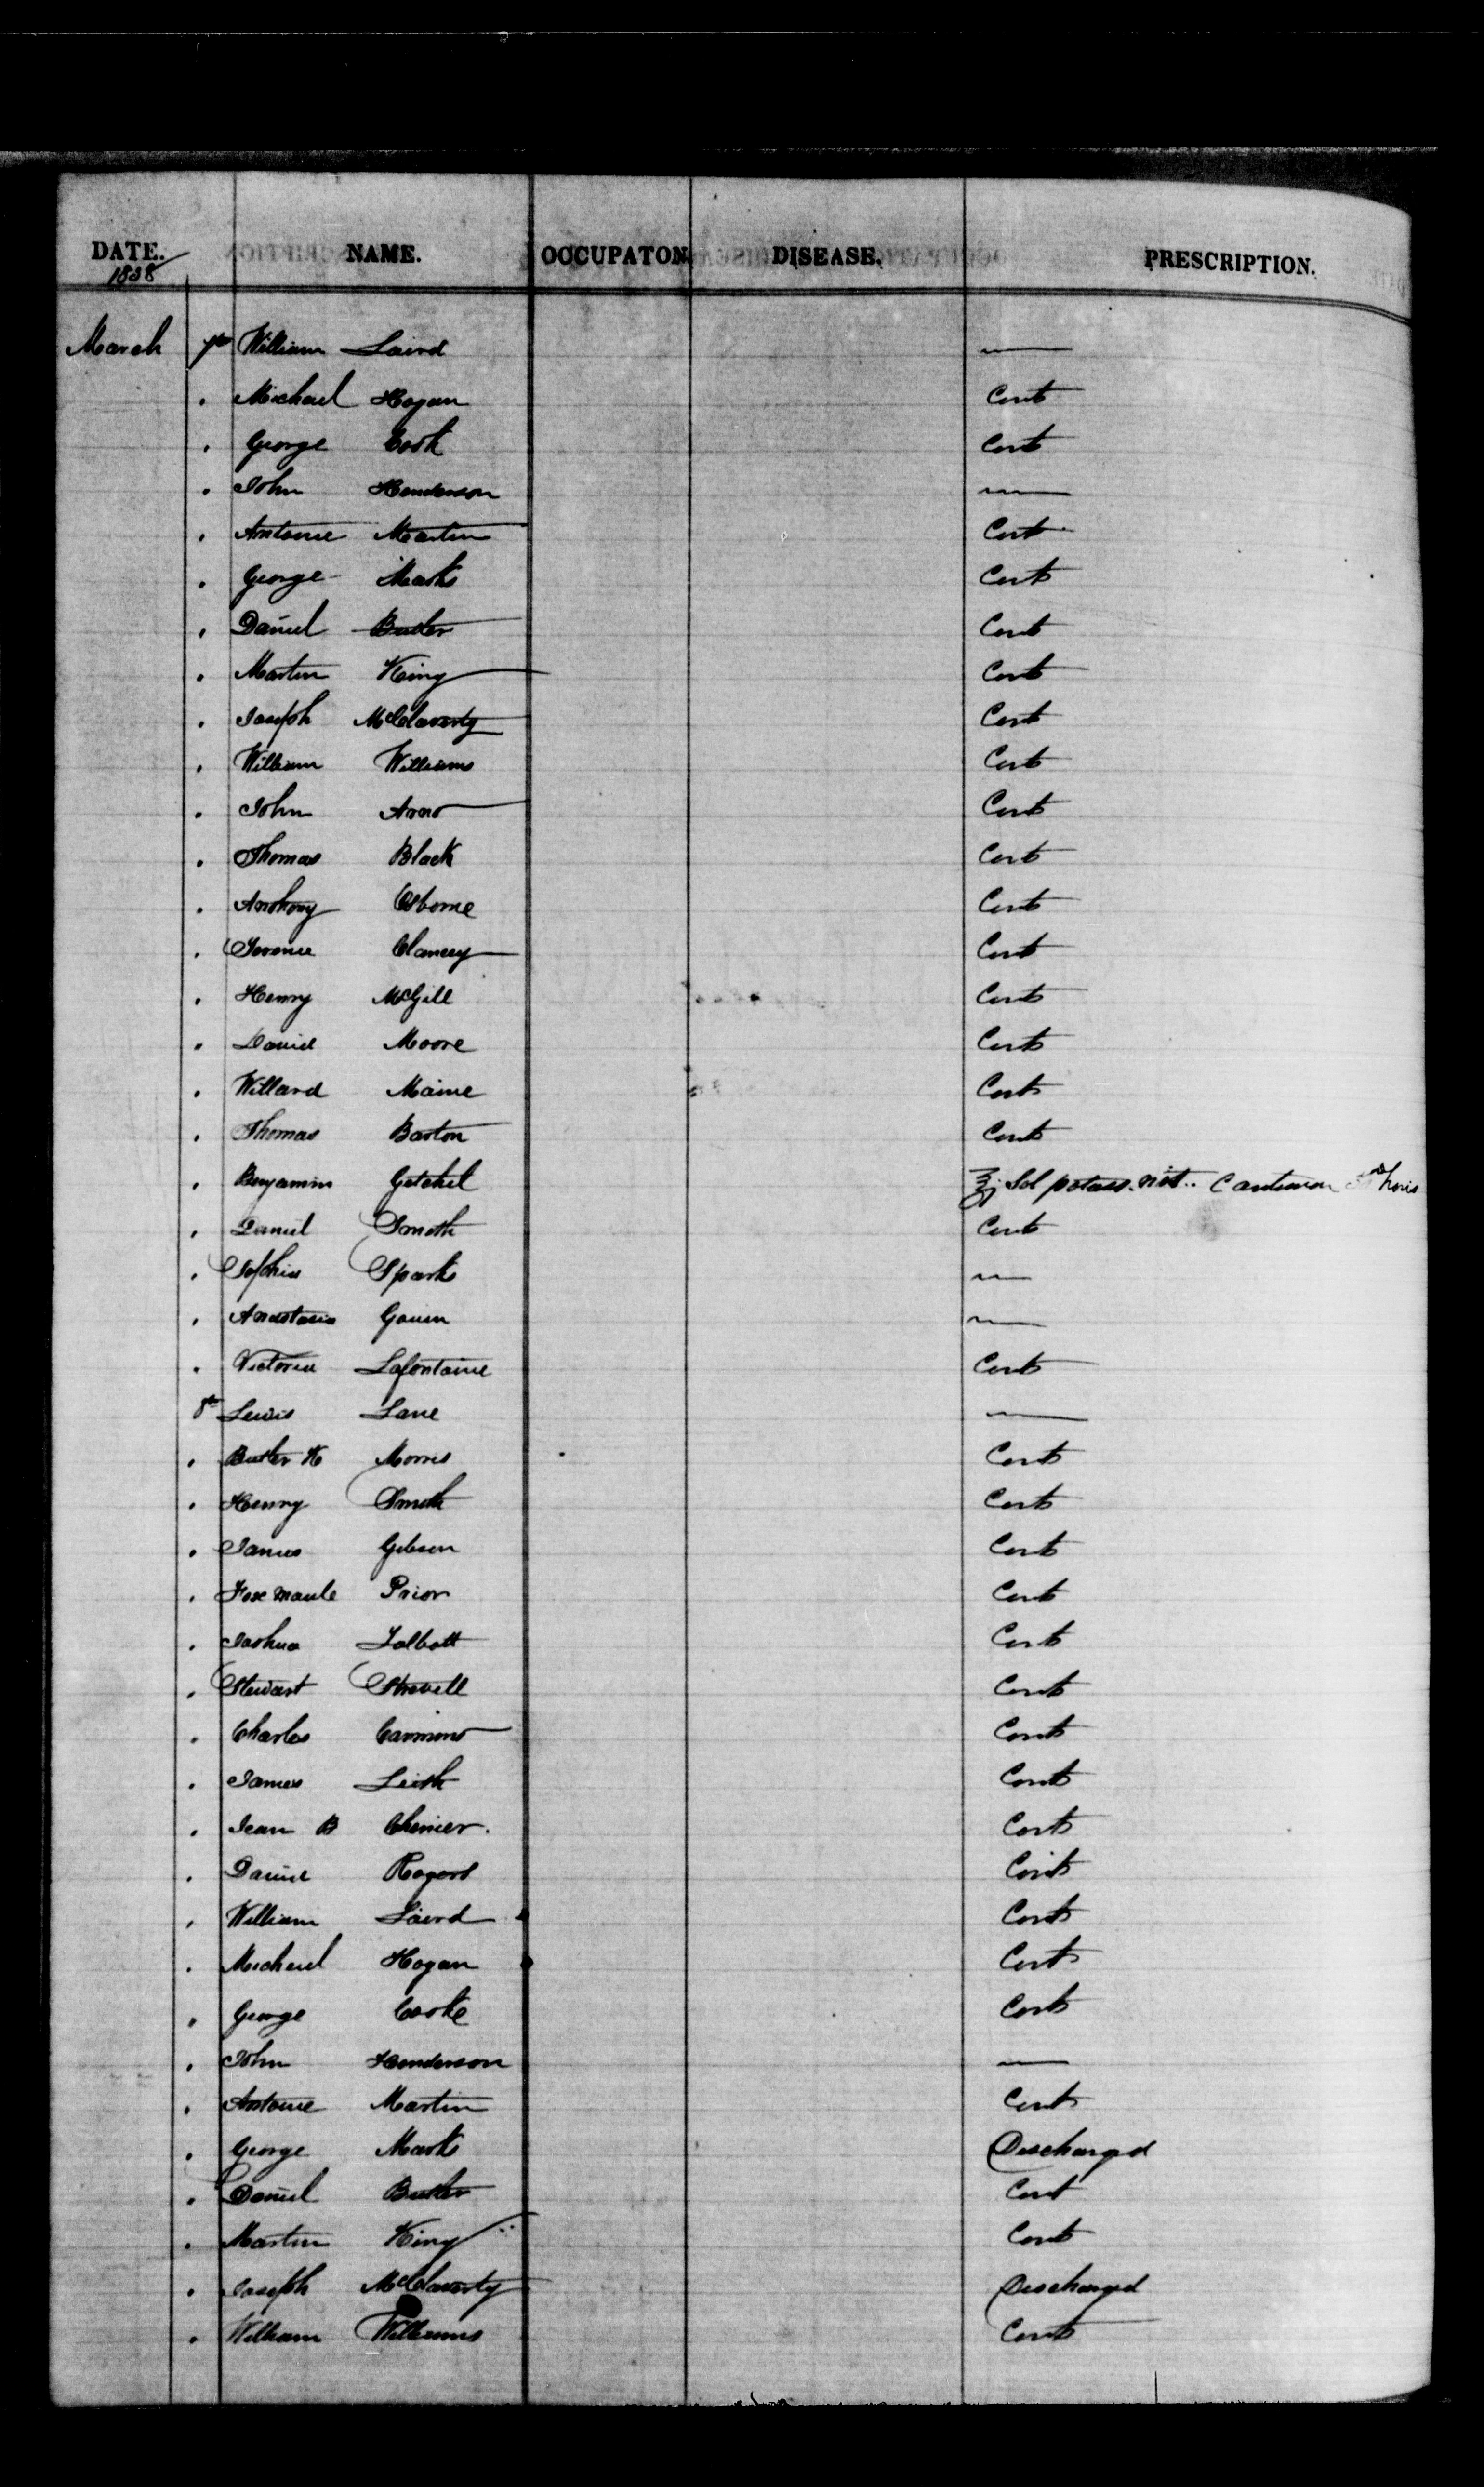 DATE. NAME. OCCUPATON DISEASE. PRESCRIPTION.
1838
March 7th William Laird —
" Michael Hogan Cont
" George Cook Cont
" John Henderson —
" Antoine Martin Cont
" George Marks Cont
" Daniel Butler Cont
" Martin King Cont
" Joseph McClaverty Cont
" William Williams Cont
" John Arno Cont
" Thomas Black Cont
" Anthony Osborne Cont
" Terence Clancey Cont
" Henry McGill Cont
" David Moore Cont
" Willard Maine Cont
" Thomas Barton Cont
" Benjamin Getchel ℥j Sol potass. nit. c antimon horis
" Daniel Smith Cont
" Sophia Sparks —
" Anastasia Gouin —
" Victoria Lafontaine Cont
8th Lewis Lane —
" Butler K Morris Cont
" Henry Smith Cont
" James Gibson Cont
" Fox maule Prior Cont
" Joshua Talbott Cont
" Stewart Strevell Cont
" Charles Cammins Cont
" James Leith Cont
" Jean B Chenier. Cont
" Daniel Rogers Cont
" William Laird Cont
" Michael Hogan Cont
" George Cooke Cont
" John Henderson —
" Antoine Martin Cont
" George Marks Discharged
" Daniel Butler Cont
" Martin King Cont
" Joseph McClaverty Discharged
" William Williams Cont